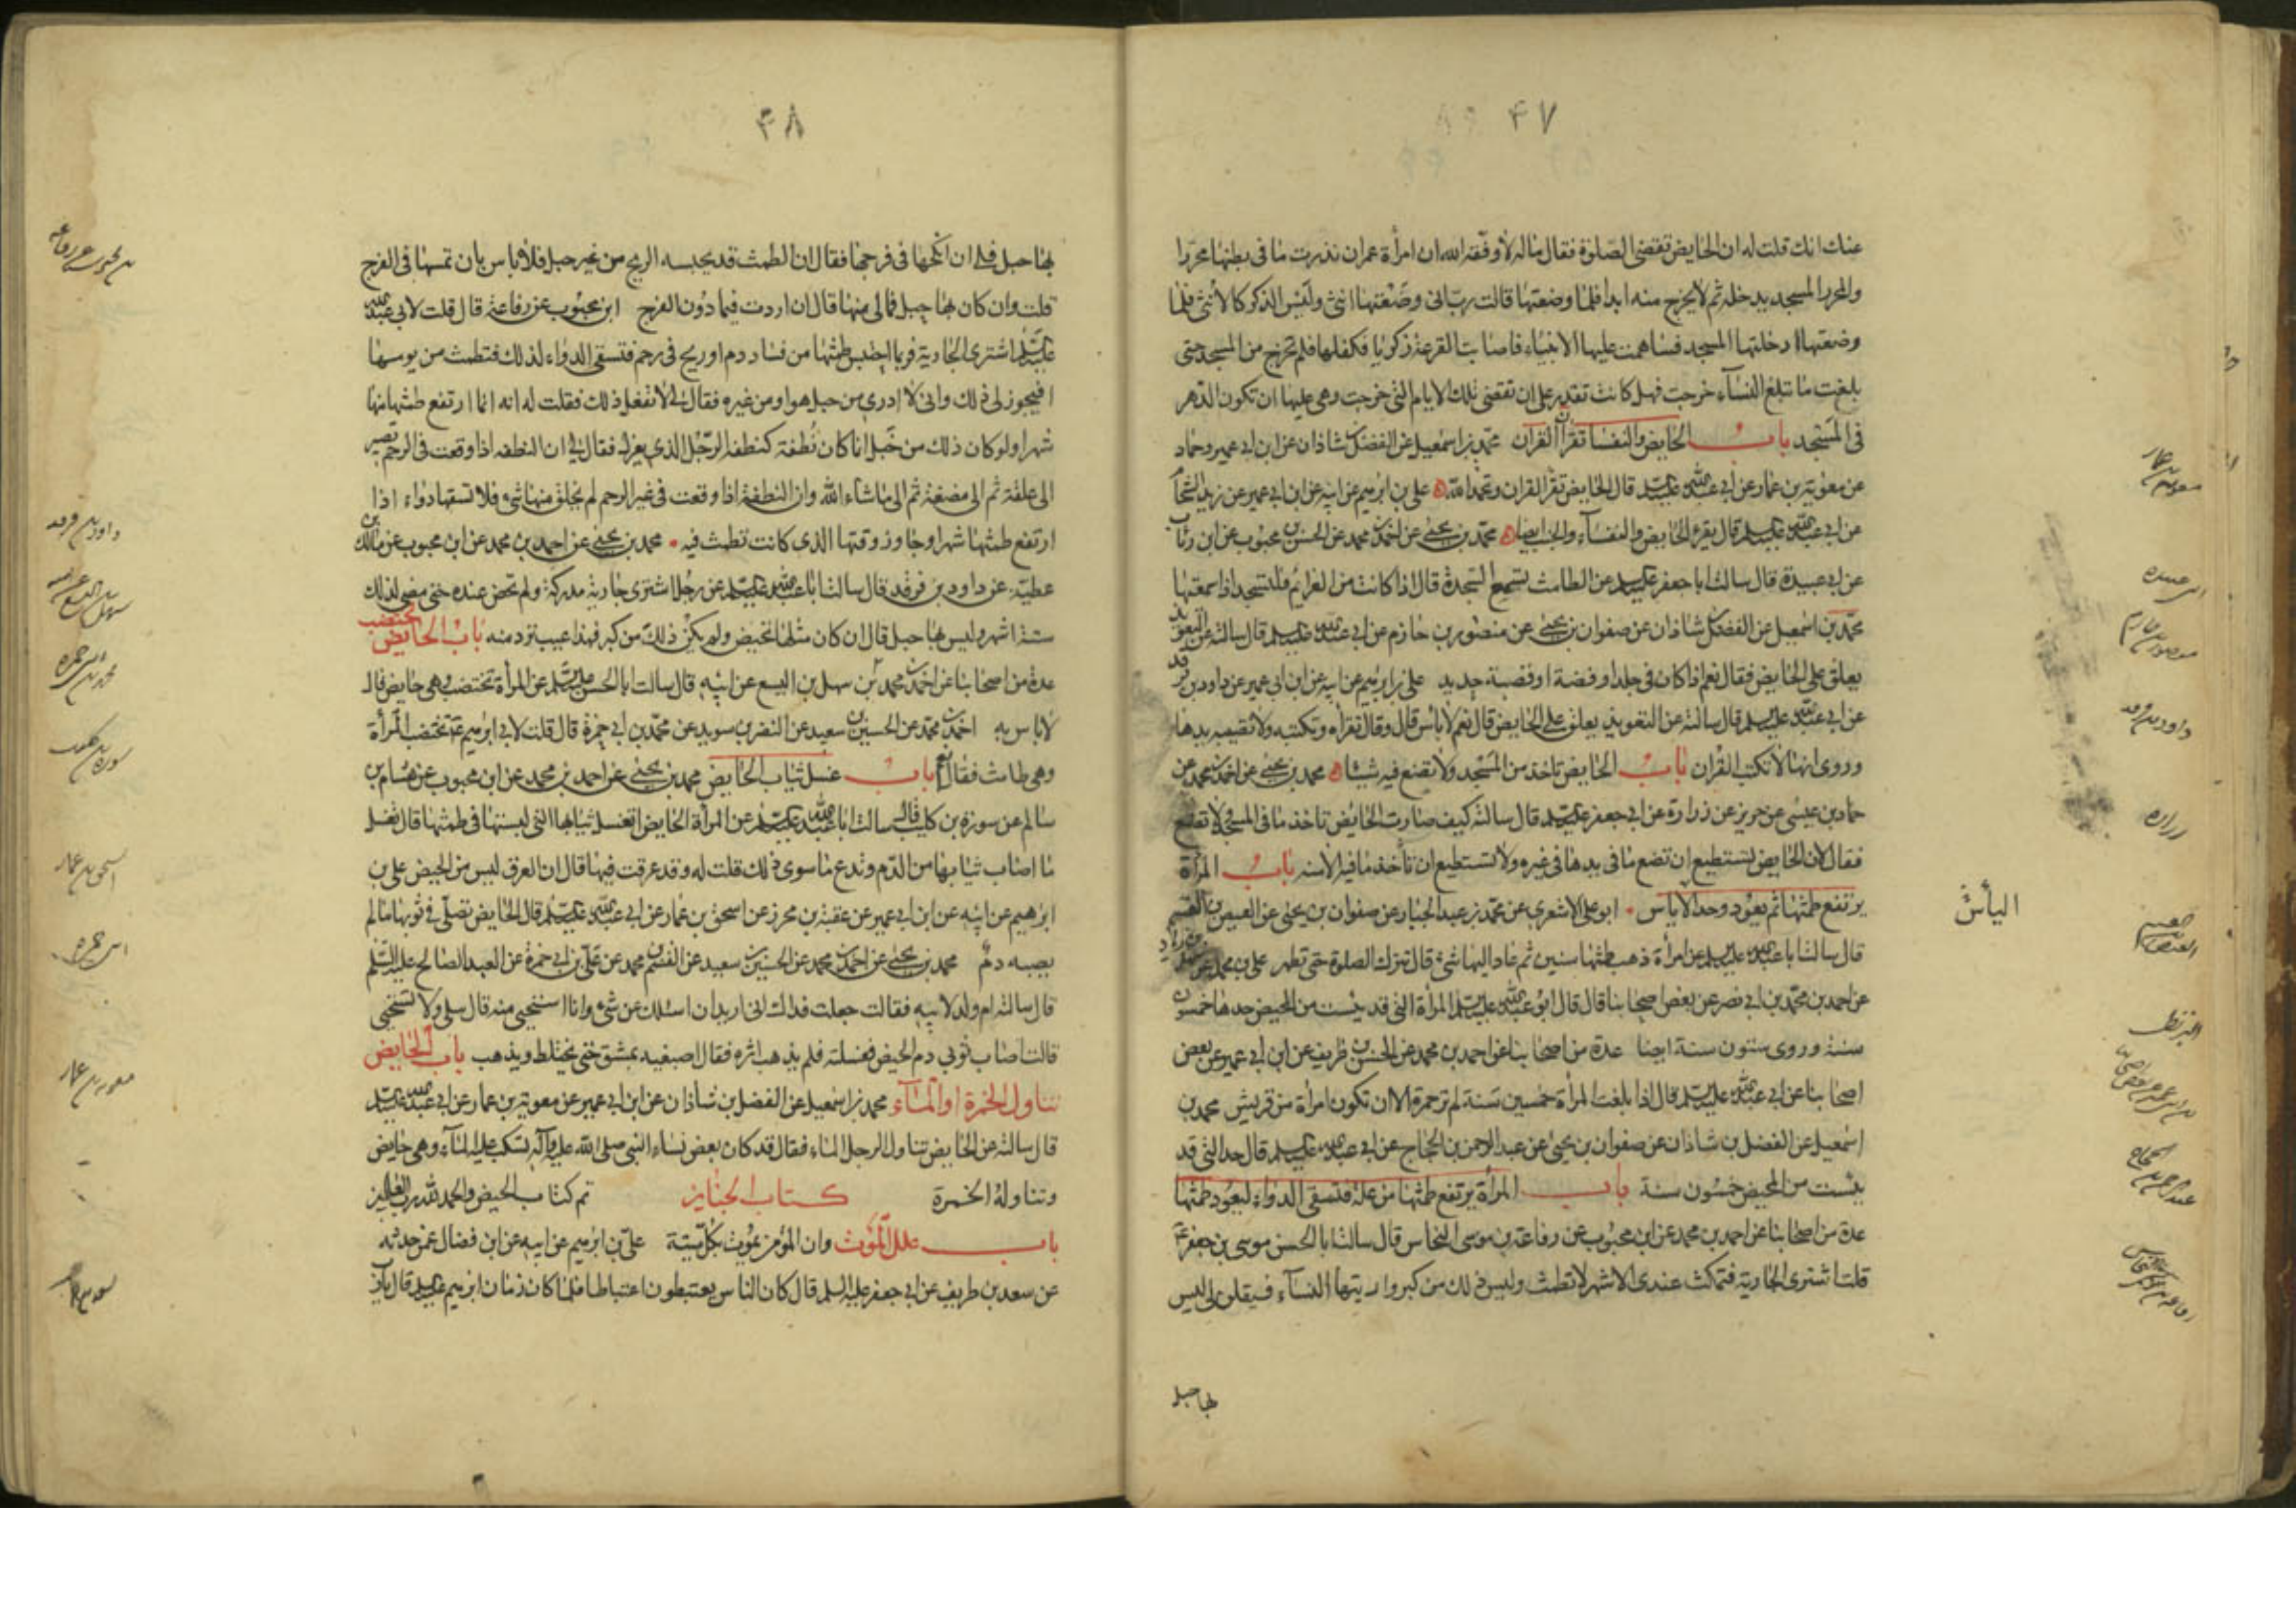 ۴۷
عنك انك قلت له ان الحايض تقضي الصلوة فقال ماله لا وفقه الله ان امرأة عمران نذرت ما في بطنها محررا
والمحرر للمسجد يدخله ثم لا يخرج منه ابدا فلما وضعتها قالت رب اني وضعتها انثى وليس الذكر كالأنثى فلما
وضعتها ادخلتها المسجد فساهمت عليها الانبياء فاصابت القرعة زكريا فكفلها فلم تخرج من المسجد حتى
بلغت ما تبلغ النسآء خرجت فهل كانت تقدر على ان تقضي تلك الايام التي خرجت وهي عليها ان تكون الدهر
في المسجد باب الحايض والنفسا تقرآن القرآن محمد بن اسمعيل عن الفضل بن شاذان عن ابن ابي عمير وحماد
عن معوية بن عمار عن ابي عبد الله عليه السلم قال الحايض تقرأ القران وتحمد الله علي بن ابرهيم عن ابيه عن ابن ابي عمير عن زيد الشحام
عن ابي عبد الله عليه السلم قال يقرء الحايض والنفسآء والجنب ايضا محمد بن يحيى عن احمد بن محمد عن الحسن بن محبوب عن ابن رئاب
عن ابي عبيدة قال سالت ابا جعفر عليه السلم عن الطامث تسمع السجدة قال اذا كانت من العزائم فلتسجد اذا سمعتها
محمد بن اسمعيل عن الفضل بن شاذان عن صفوان بن يحيى عن منصور بن حازم عن ابي عبد الله عليه السلم قال سالته عن التعويذ
يعلق على الحايض فقال نعم اذا كان في جلد او فضة او قصبة حديد علي بن ابرهيم عن ابيه عن ابن ابي عمير عن داود بن فرقد
عن ابي عبد الله عليه السلم قال سالته عن التعويذ يعلق على الحايض قال نعم لا بأس قال وقال تقرأه وتكتبه ولا تصيبه يدها
وروى انها لا تكتب القرآن باب الحايض تاخذ من المسجد ولا تضع فيه شيئا محمد بن يحيى عن احمد بن محمد عن
حماد بن عيسى عن حريز عن زرارة عن ابي جعفر عليه السلم قال سالته كيف صارت الحايض تاخذ ما في المسجد ولا تضع فيه
فقال لان الحايض تستطيع ان تضع ما في يدها في غيره ولا تستطيع ان تأخذ ما فيه الا منه باب المرأة
يرتفع طمثها ثم يعود وحد الاياس ابو علي الاشعري عن محمد بن عبد الجبار عن صفوان بن يحيى عن العيص بن القسم
قال سالت ابا عبد الله عليه السلم عن امرأة ذهب طمثها سنين ثم عاد اليها شئ قال تترك الصلوة حتى تطهر علي بن محمد عن سهل بن زياد
عن احمد بن محمد بن ابي نصر عن بعض اصحابنا قال قال ابو عبد الله عليه السلم المرأة التي قد يئست من المحيض حدها خمسون
سنة وروى ستون سنة ايضا عدة من اصحابنا عن احمد بن محمد عن الحسن بن ظريف عن ابن ابي عمير عن بعض
اصحابنا عن ابي عبد الله عليه السلم قال اذا بلغت المرأة خمسين سنة لم تر حمرة الا ان تكون امرأة من قريش محمد بن
اسمعيل عن الفضل بن شاذان عن صفوان بن يحيى عن عبد الرحمن بن الحجاج عن ابي عبد الله عليه السلم قال حد التي قد
يئست من المحيض خمسون سنة باب المرأة يرتفع طمثها من علة فتسقى الدواء ليعود طمثها
عدة من اصحابنا عن احمد بن محمد عن ابن محبوب عن رفاعة بن موسى النخاس قال سالت ابا الحسن موسى بن جعفر ع
قلت اشترى الجارية فتمكث عندي الاشهر لا تطمث وليس ذلك من كبر واريتها النسآء فيقلن لي ليس
بها حبل
معوية بن عمار
ابي عبيدة
منصور بن حازم
داود بن فرقد
زرارة
اليأس
العيص بن القسم
البزنطي
عبد الرحمن بن الحجاج
۴۸
بها حبل فلي ان انكحها في فرجها فقال ان الطمث قد يحبسه الريح من غير حبل فلا باس بان تمسها في الفرج
قلت وان كان بها حبل فمالي منها قال ان اردت فيما دون الفرج ابن محبوب عن رفاعة قال قلت لابي عبد الله
عليه السلم اشترى الجارية فربما احتبس طمثها من فساد دم او ريح في رحم فتسقى الدواء لذلك فتطمث من يومها
افيجوز لي ذلك واني لا ادري من حبل هو او من غيره فقال لي لا تفعل ذلك فقلت له انه انما ارتفع طمثها منها
شهرا ولو كان ذلك من حبل انما كان نطفة كنطفة الرجل الذي يعزل فقال لي ان النطفه اذا وقعت في الرحم تصير
الى علقة ثم الى مضغة ثم الى ما شاء الله وان النطفة اذا وقعت في غير الرحم لم يخلق منها شئ فلا تسقها دواء اذا
ارتفع طمثها شهرا وجاوز وقتها الذي كانت تطمث فيه محمد بن يحيى عن احمد بن محمد عن ابن محبوب عن مالك بن
عطية عن داود بن فرقد قال سالت ابا عبد الله عليه السلم عن رجل اشترى جارية مدركة ولم تحض عنده حتى مضى لذلك
ستة اشهر وليس بها حبل قال ان كان مثلها تحيض ولم يكن ذلك من كبر فهذا عيب ترد منه باب الحايض تختضب
عدة من اصحابنا عن احمد بن محمد عن سهل بن اليسع عن ابيه قال سالت ابا الحسن عليه السلم عن المرأة تختضب وهي حايض قال
لا باس به احمد بن محمد عن الحسين بن سعيد عن النضر بن سويد عن محمد بن ابي حمزة قال قلت لابي ابرهيم ع تختضب المرأة
وهي طامث فقال نعم باب غسل ثياب الحايض محمد بن يحيى عن احمد بن محمد عن ابن محبوب عن هشام بن
سالم عن سورة بن كليب قال سالت ابا عبد الله عليه السلم عن المرأة الحايض اتغسل ثيابها التي لبستها في طمثها قال تغسل
ما اصاب ثيابها من الدم وتدع ما سوى ذلك قلت له وقد عرقت فيها قال ان العرق ليس من الحيض علي بن
ابرهيم عن ابيه عن ابن ابي عمير عن عقبة بن محرز عن اسحق بن عمار عن ابي عبد الله عليه السلم قال الحايض تصلي في ثوبها ما لم
يصبه دم محمد بن يحيى عن احمد بن محمد عن الحسين بن سعيد عن القسم بن محمد عن علي بن ابي حمزة عن العبد الصالح عليه السلم
قال سالته ام ولد لابيه فقالت جعلت فداك اني اريد ان اسئلك عن شئ وانا استحيي منه قال سلي ولا تستحيي
قالت اصاب ثوبي دم الحيض فغسلته فلم يذهب اثره فقال اصبغيه بمشق حتى يختلط ويذهب باب الحايض
تتناول الخمرة او المآء محمد بن اسمعيل عن الفضل بن شاذان عن ابن ابي عمير عن معوية بن عمار عن ابي عبد الله عليه السلم
قال سالته عن الحايض تناول الرجل الماء فقال قد كان بعض نساء النبي صلى الله عليه وآله تسكب عليه المآء وهي حايض
وتناوله الخمرة كتاب الجنايز تم كتاب الحيض والحمد لله رب العالمين
باب علل الموت وان المؤمن يموت بكل ميتة علي بن ابرهيم عن ابيه عن ابن فضال عمن حدثه
عن سعد بن طريف عن ابي جعفر عليه السلم قال كان الناس يعتبطون اعتباطا فلما كان زمان ابرهيم عليه السلم قال يا رب
داود بن فرقد
محمد بن ابي حمزة
سورة بن كليب
اسحق بن عمار
معوية بن عمار